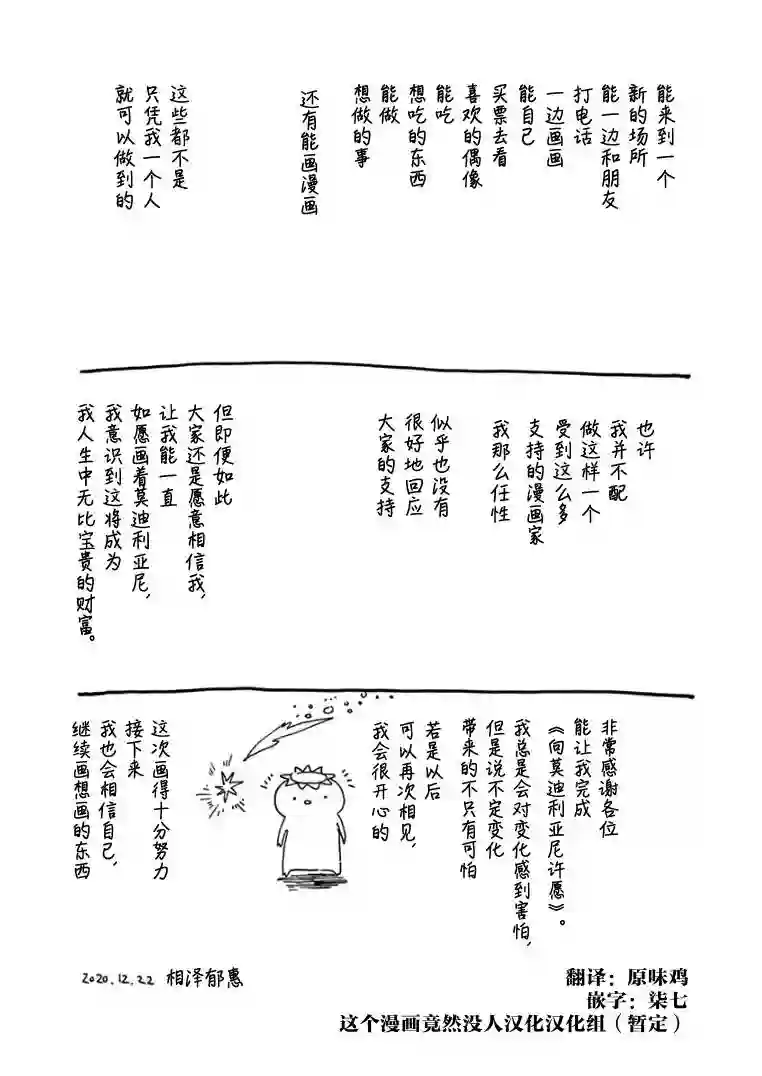 能来到一个
新的场所
能一边和朋友
打电话
一边画画
能自己
买票去看
喜欢的偶像
能吃
想吃的东西
能做
想做的事
还有能画漫画
这些都不是
只凭我一个人
就可以做到的
也许
我并不配
做这样一个
受到这么多
支持的漫画家
我那么任性
似乎也没有
很好地回应
大家的支持
但即便如此
大家还是愿意相信我,
让我能一直
如愿画着莫迪利亚尼,
我意识到这将成为
我人生中无比宝贵的财富。
非常感谢各位
能让我完成
《向莫迪利亚尼许愿》。
我总是会对变化感到害怕,
但是说不定变化
带来的不只有可怕
若是以后
可以再次相见,
我会很开心的
这次画得十分努力
接下来
我也会相信自己,
继续画想画的东西
2020.12.22 相泽郁惠
翻译：原味鸡
嵌字：柒七
这个漫画竟然没人汉化汉化组（暂定）